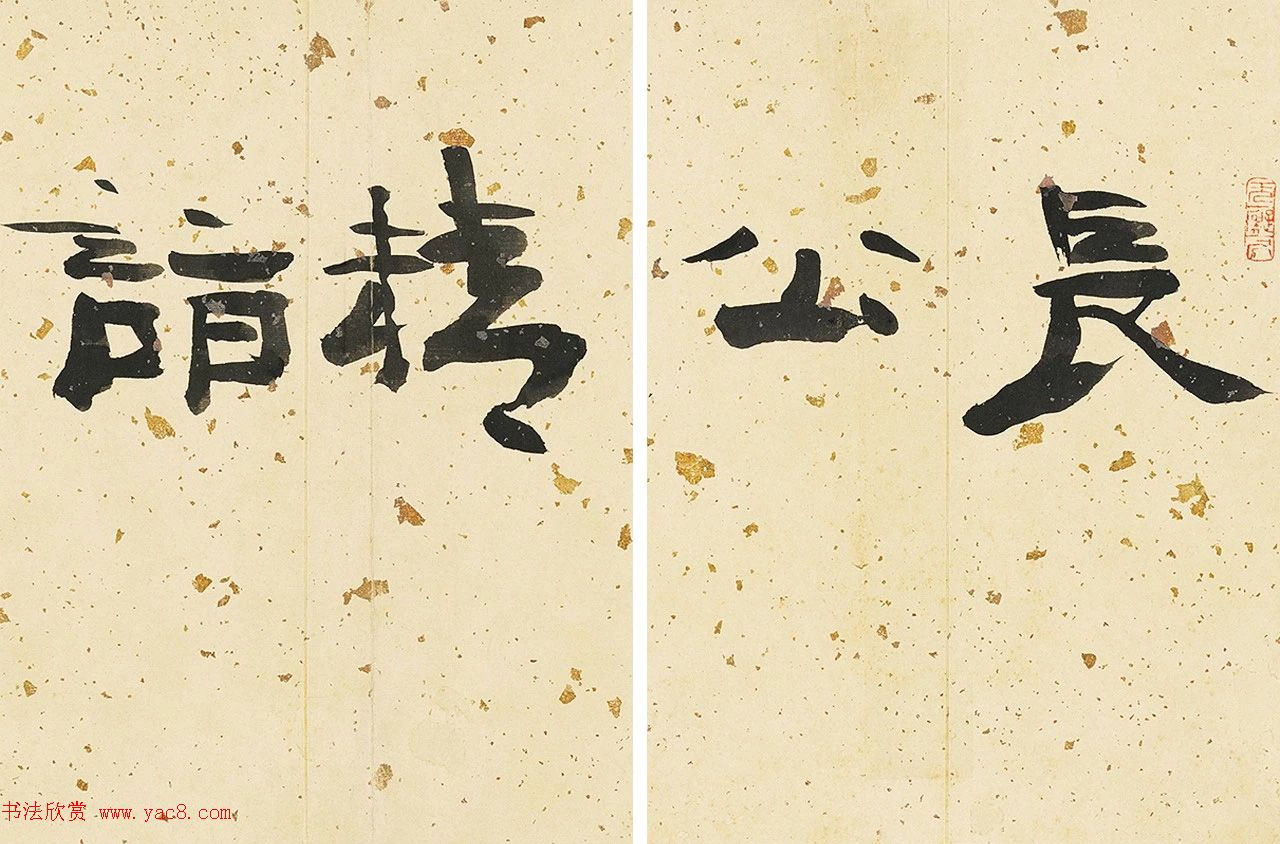 長公詣
书法欣赏 www.yac8.com